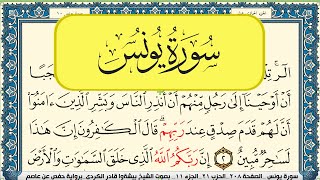 سُورَةُ يُونُسَ
الٓر تِلۡ
جَبًا
أَنۡ أَوۡحَيۡنَآ إِلَىٰ رَجُلٖ مِّنۡهُمۡ أَنۡ أَنذِرِ ٱلنَّاسَ وَبَشِّرِ ٱلَّذِينَ ءَامَنُوٓاْ
أَنَّ لَهُمۡ قَدَمَ صِدۡقٍ عِندَ رَبِّهِمۡۗ قَالَ ٱلۡكَٰفِرُونَ إِنَّ هَٰذَا
لَسَٰحِرٞ مُّبِينٌ ٢ إِنَّ رَبَّكُمُ ٱللَّهُ ٱلَّذِي خَلَقَ ٱلسَّمَٰوَٰتِ وَٱلۡأَرۡضَ
سورة يونس الصفحة ٢٠٨ الحزب ٢١ الجزء ١١ بصوت الشيخ بيشةوا قادر الكردي برواية حفص عن عاصم